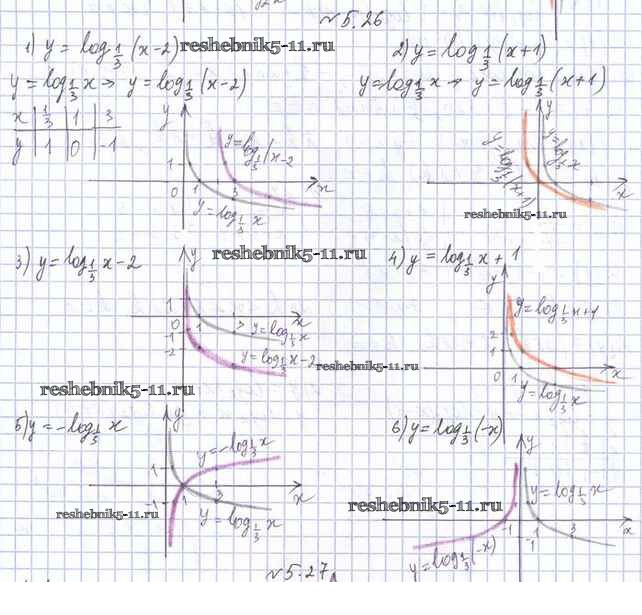 №5.26
1) y = log_{1/3}(x-2)
reshebnik5-11.ru
2) y = log_{1/3}(x+1)
y = log_{1/3} x → y = log_{1/3}(x-2)
y = log_{1/3} x → y = log_{1/3}(x+1)
x | 1/3 | 1 | 3
y | 1 | 0 | -1
y
1
0 1 3 x
y = log_{1/3}(x-2
y = log_{1/3} x
y
y = log_{1/3} x
y = log_{1/3}(x+1)
x
reshebnik5-11.ru
3) y = log_{1/3} x - 2
reshebnik5-11.ru
4) y = log_{1/3} x + 1
y
1
0 1 x
-1
-2
y = log_{1/3} x
y = log_{1/3} x - 2
reshebnik5-11.ru
y
2
1
0 1 x
y = log_{1/3} x + 1
y = log_{1/3} x
reshebnik5-11.ru
5) y = -log_{1/3} x
y
1
-1
1 3 x
y = -log_{1/3} x
y = log_{1/3} x
reshebnik5-11.ru
6) y = log_{1/3}(-x)
y
-1 1 3 x
-1
y = log_{1/3} x
y = log_{1/3}(-x)
reshebnik5-11.ru
№5.27